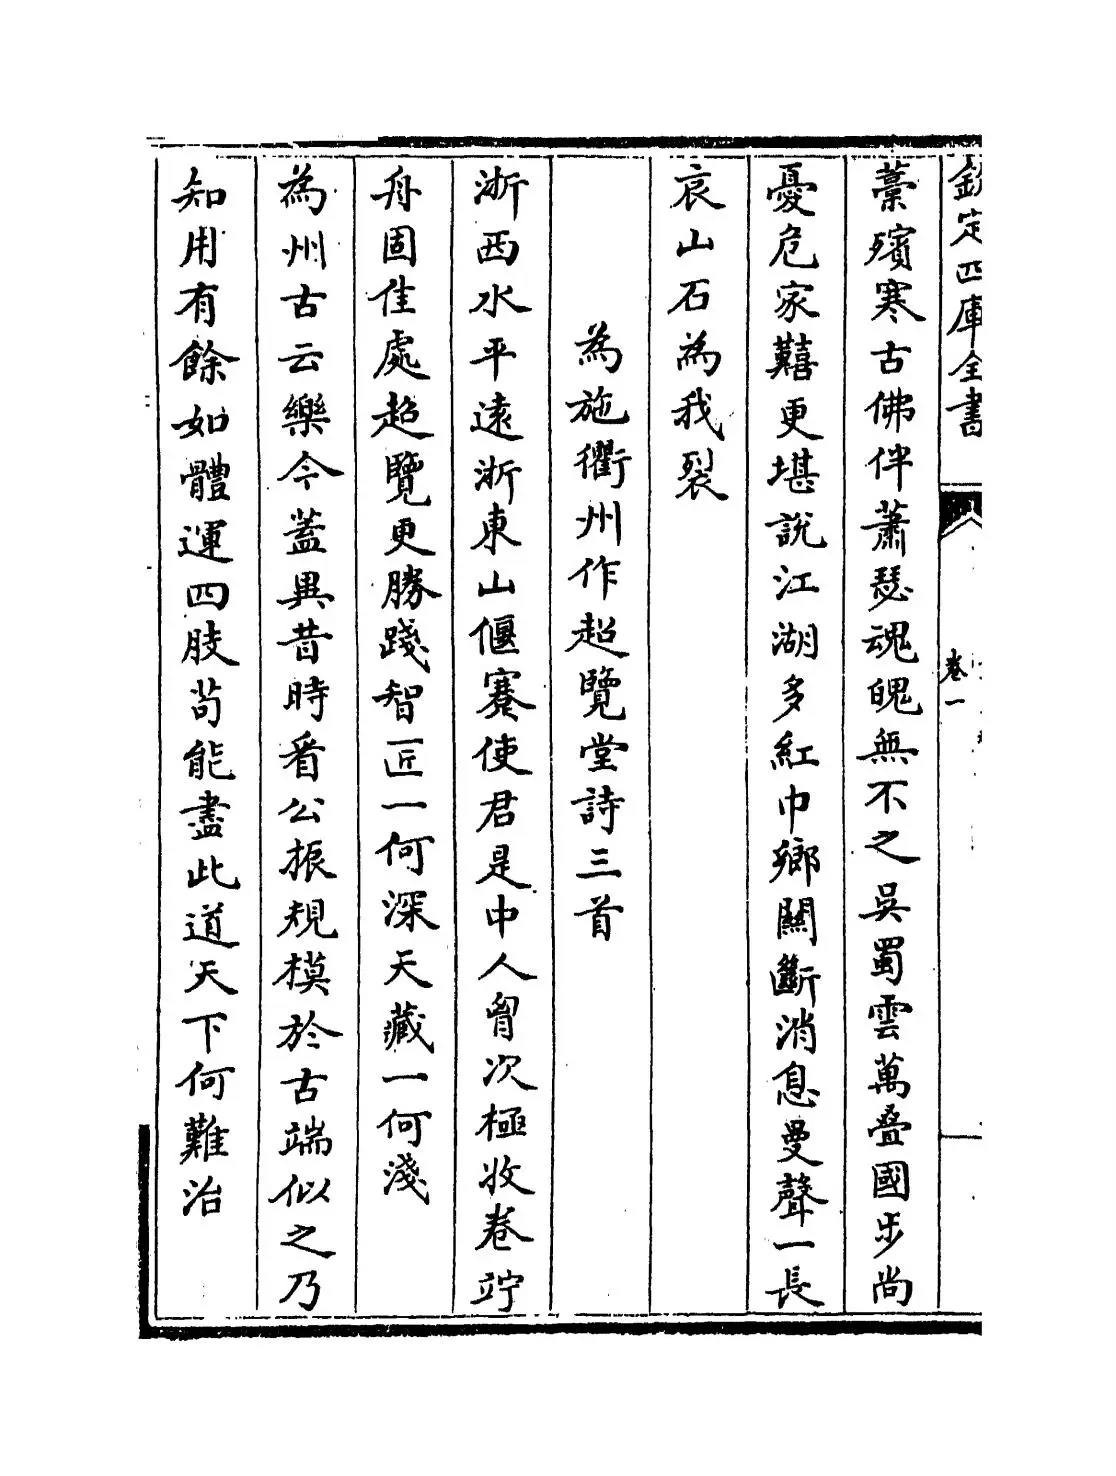 欽定四庫全書
卷一
藁殯寒古佛伴蕭瑟魂魄無不之吳蜀雲萬叠國步尚
憂危家囏更堪說江湖多紅巾鄉關斷消息曼聲一長
哀山石為我裂
為施衢州作超覽堂詩三首
浙西水平遠浙東山偃蹇使君是中人胷次極收卷竚
舟固佳處超覽更勝踐智匠一何深天藏一何淺
為州古云樂今蓋異昔時看公振規模於古端似之乃
知用有餘如體運四肢苟能盡此道天下何難治